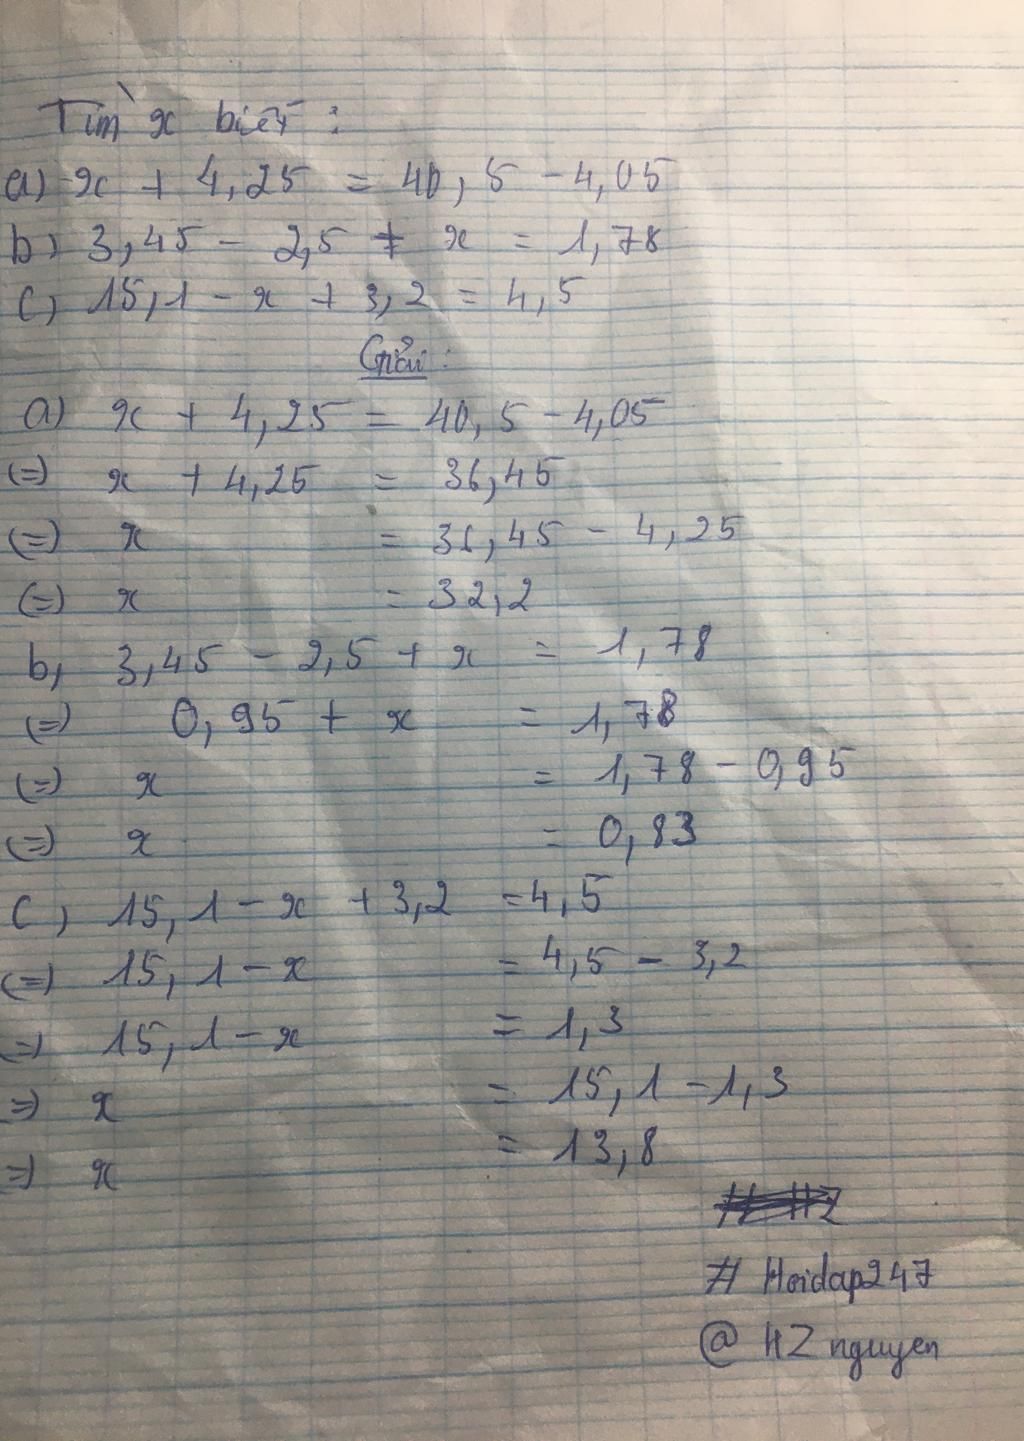 Tìm x biết :
a) x + 4,25 = 40,5 - 4,05
b) 3,45 - 2,5 + x = 1,78
c, 15,1 - x + 3,2 = 4,5
Giải :
a) x + 4,25 = 40,5 - 4,05
(=) x + 4,25 = 36,45
(=) x = 36,45 - 4,25
(=) x = 32,2
b, 3,45 - 2,5 + x = 1,78
(=) 0,95 + x = 1,78
(=) x = 1,78 - 0,95
(=) x = 0,83
c, 15,1 - x + 3,2 = 4,5
(=) 15,1 - x = 4,5 - 3,2
=) 15,1 - x = 1,3
=) x = 15,1 - 1,3
=) x = 13,8
# Hoidap247
@ HZ nguyen